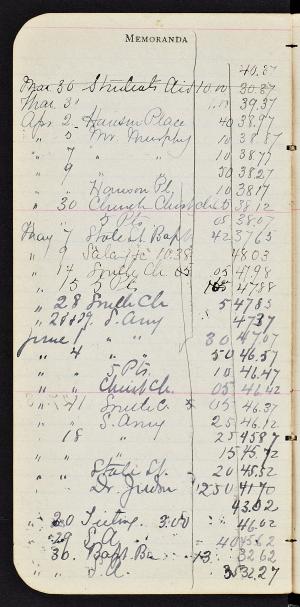 MEMORANDA
40.87
Mar. 30 Students Aid 10.00 30.87
Mar. 31 39.37
Apr 2 Hanson Place 40 38.97
" 5 Mr. Murphy 10 38.87
" 7 " 10 38.77
" 9 " 50 38.27
" Hanson Pl. 10 38.17
" 30 Church Christ 05 38.12
" 5 Pts. 05 38.07
May 7 State St. Bapt 42 37.65
" 9 Salary 10.38 48.03
" 14 South Ch 05 05 47.98
" 15 5 Pts 47.88
" 28 South Ch 5 47.83
" 28+29 S. Army 47.37
June 1 " " 30 47.07
" 4 " " 50 46.57
" " 5 Pts. 10 46.47
" " Christ Ch. 05 46.42
" 11 South C. 05 46.37
" " S. Army 25 46.12
" 18 " 25 45.87
" " 15 45.72
" " State St. 20 45.52
" " Dr. 41.70
43.02
" 20 3.00 46.02
" 29 S. A. 40 45.62
" 30. Bapt. Ba 13. 32.62
" " S. A. 35 32.27